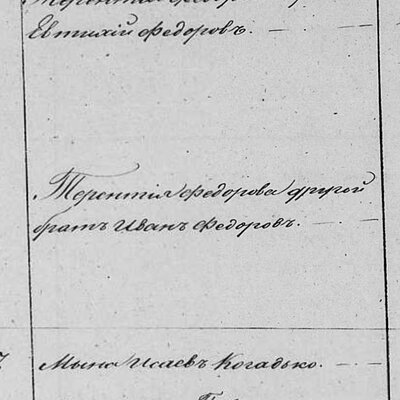 Терентия Федор
Евтихій Федоровъ. —
Терентія Федорова другой
братъ Иванъ Федоровъ. — —
Мына Исаевъ Когадько. — —